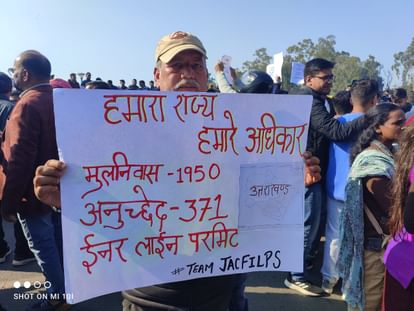 हमारा राज्य
हमारे अधिकार
मुलनिवास - 1950
अनुच्छेद - 371
उत्तराखण्ड
ईनर लाईन परमिट
#= TEAM JACFILPS
SHOT ON MI 101